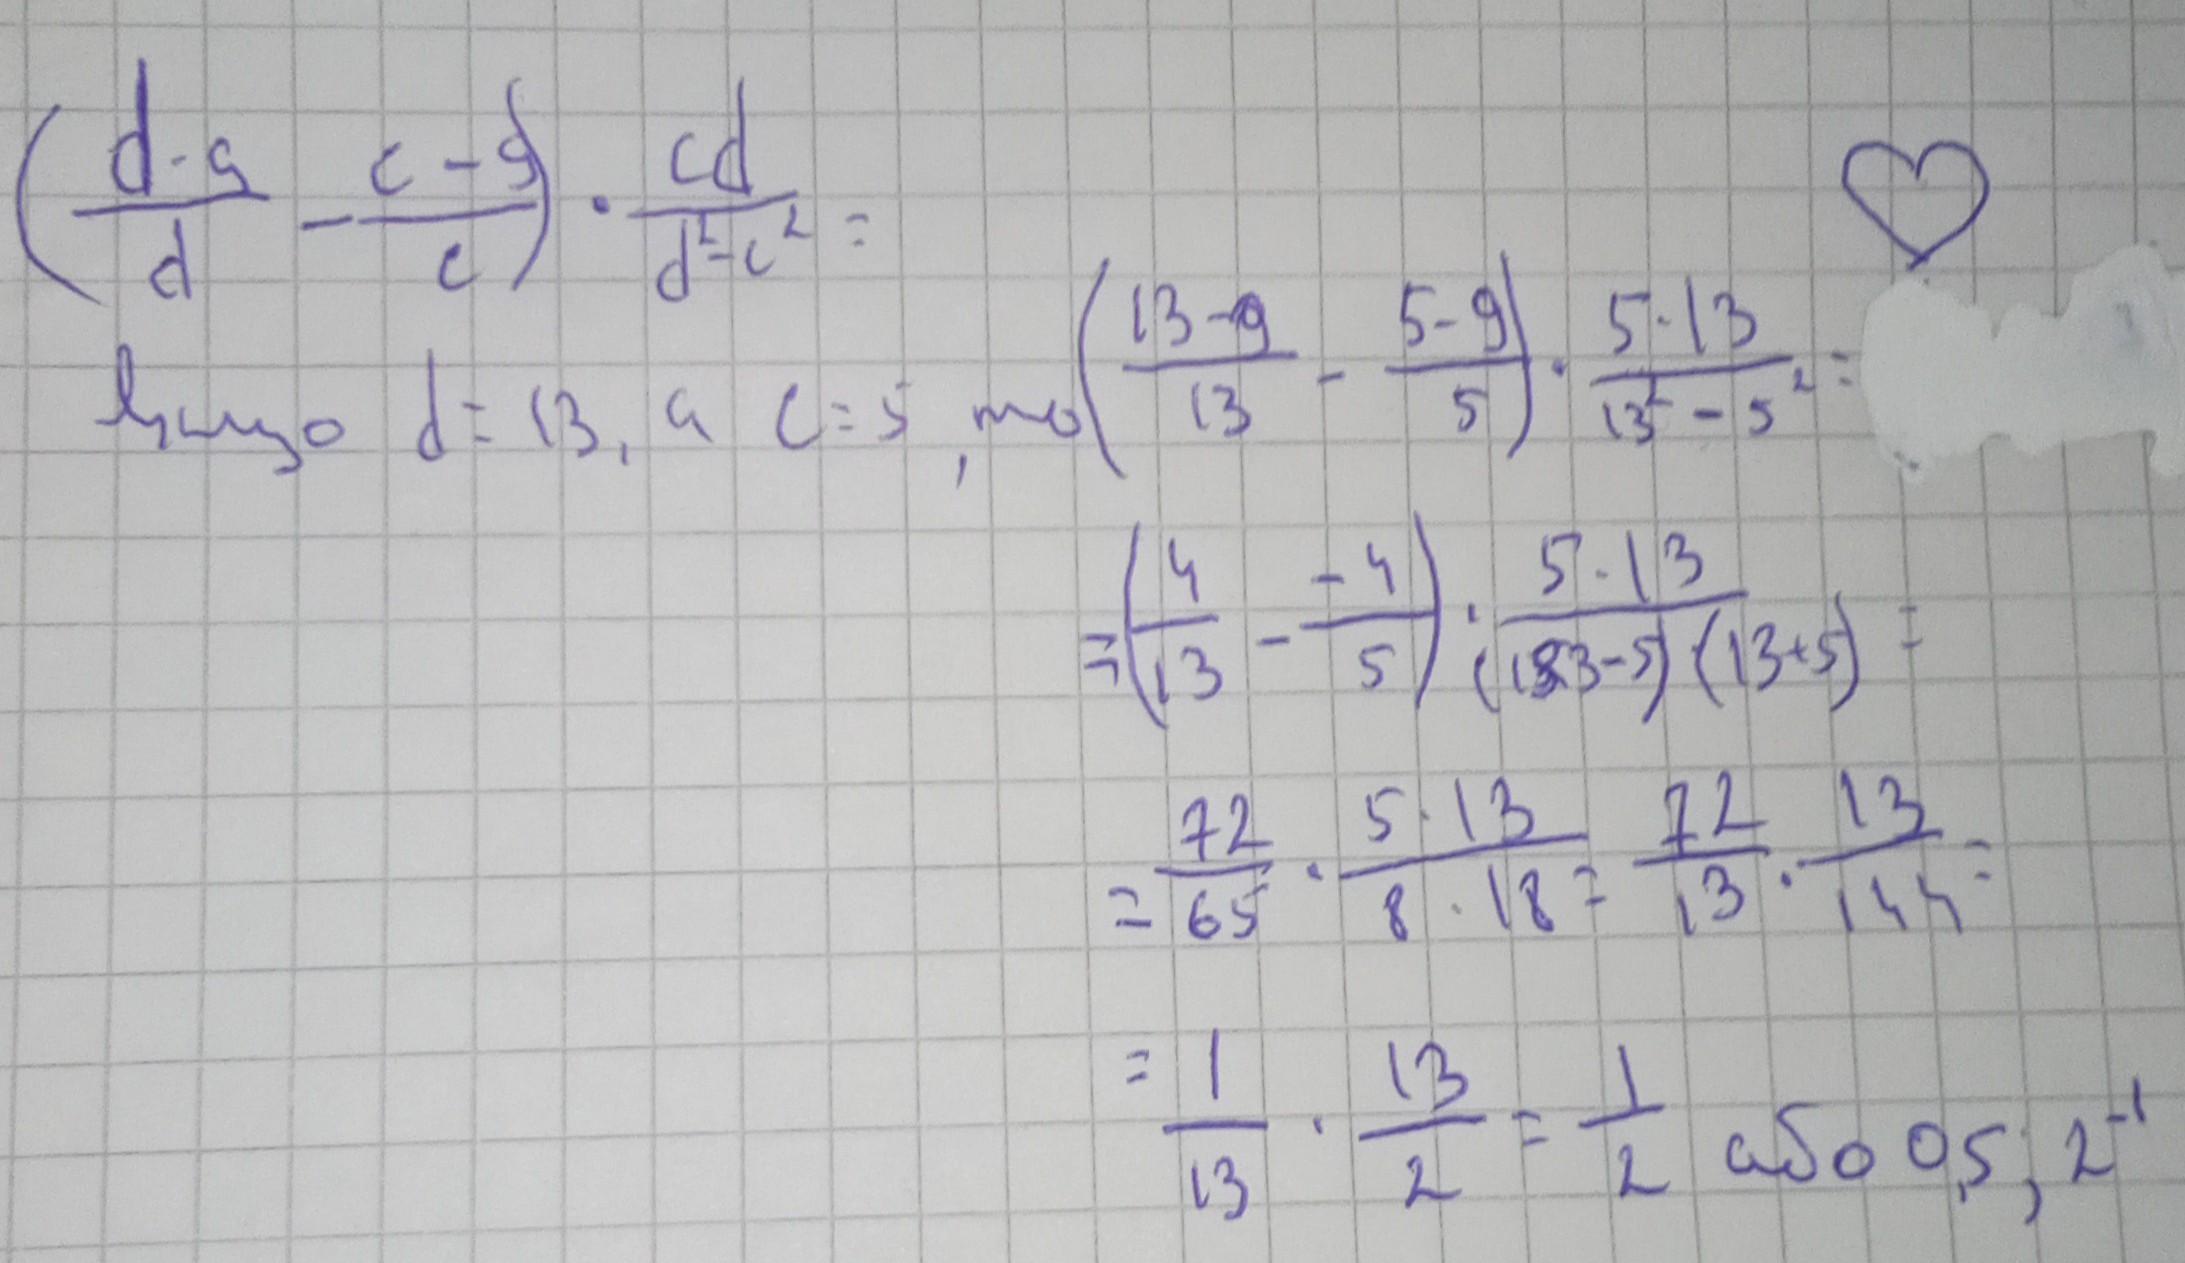 (d-9/d - c-9/c) · cd/d²-c² =
якщо d=13, а c=5, то (13-9/13 - 5-9/5) · 5·13/13²-5² =
= (4/13 - -4/5) · 5·13/(13-5)(13+5) =
= 72/65 · 5·13/8·18 = 72/13 · 13/144 =
= 1/13 · 13/2 = 1/2 або 0,5; 2⁻¹